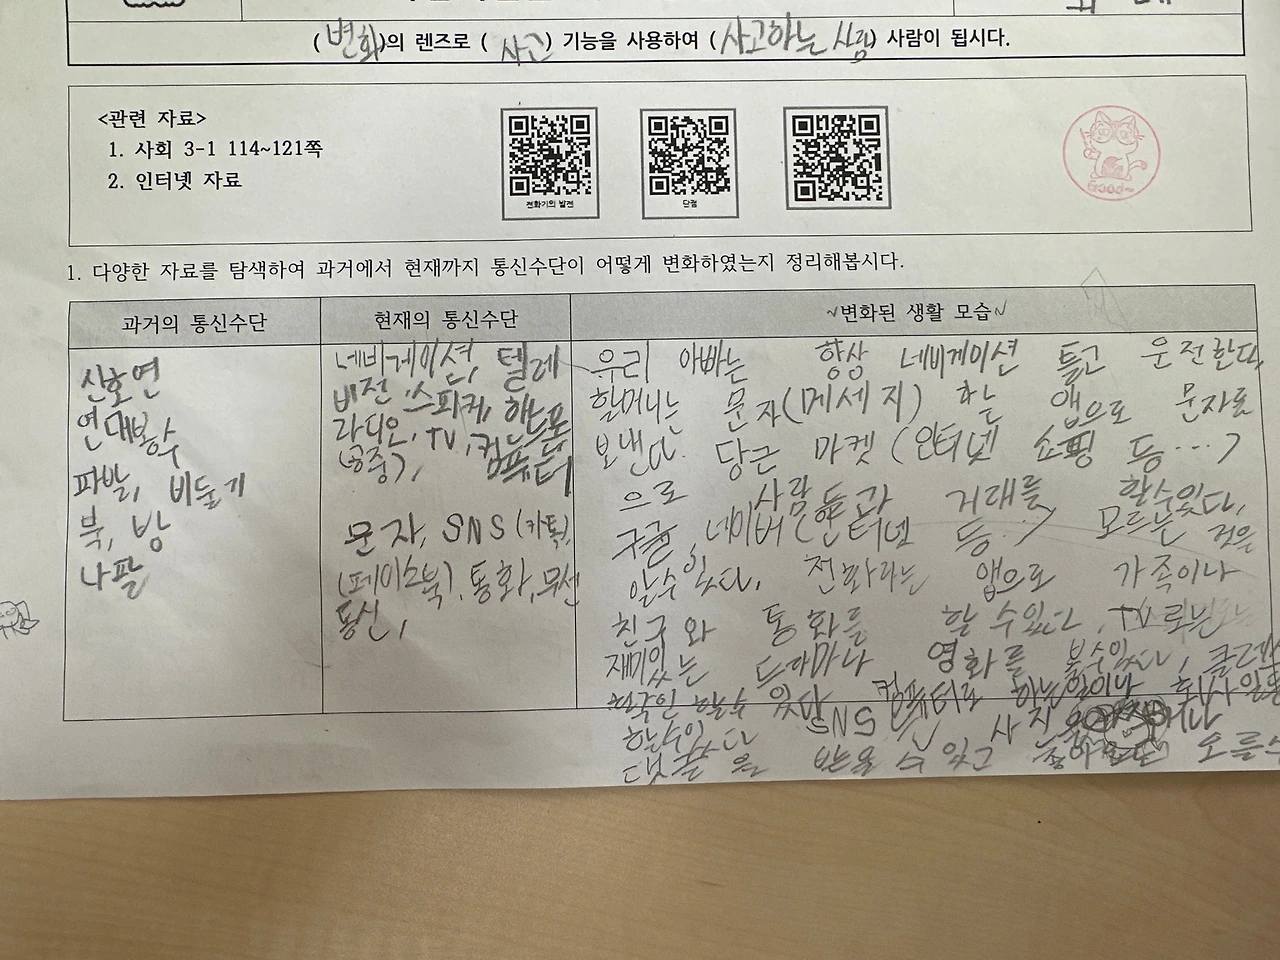 (변화)의 렌즈로 (사고) 기능을 사용하여 (사고하는 사람) 사람이 됩시다.
<관련 자료>
1. 사회 3-1 114~121쪽
2. 인터넷 자료
전화기의 발전
단점
Good~
1. 다양한 자료를 탐색하여 과거에서 현재까지 통신수단이 어떻게 변화하였는지 정리해봅시다.
과거의 통신수단
신호연
연대봉수
파발, 비둘기
북, 방
나팔
현재의 통신수단
네비게이션, 텔레
비전, 스피커, 핸드폰
라디오, TV, 컴퓨터
(공중),
문자, SNS (카톡),
(페이스북), 통화, 무선
통신,
~변화된 생활 모습~
우리 아빠는 항상 네비게이션 틀고 운전한다,
할머니는 문자(메세지) 하는 앱으로 문자로
보낸다. 당근 마켓 (인터넷 쇼핑 등...)
으로 사람들과 거래를 할수있다,
구글, 네이버 (인터넷 등..) 모르는 것을
알수 있다, 전화라는 앱으로 가족이나
친구와 통화를 할 수있다, TV로
재미있는 드라마나 영화를 볼수있다,
할수 있다 컴퓨터로 하는일이나 회사일을
할수있다 SNS 사진을
댓글을 받을 수 있고 좋아요도 오를수